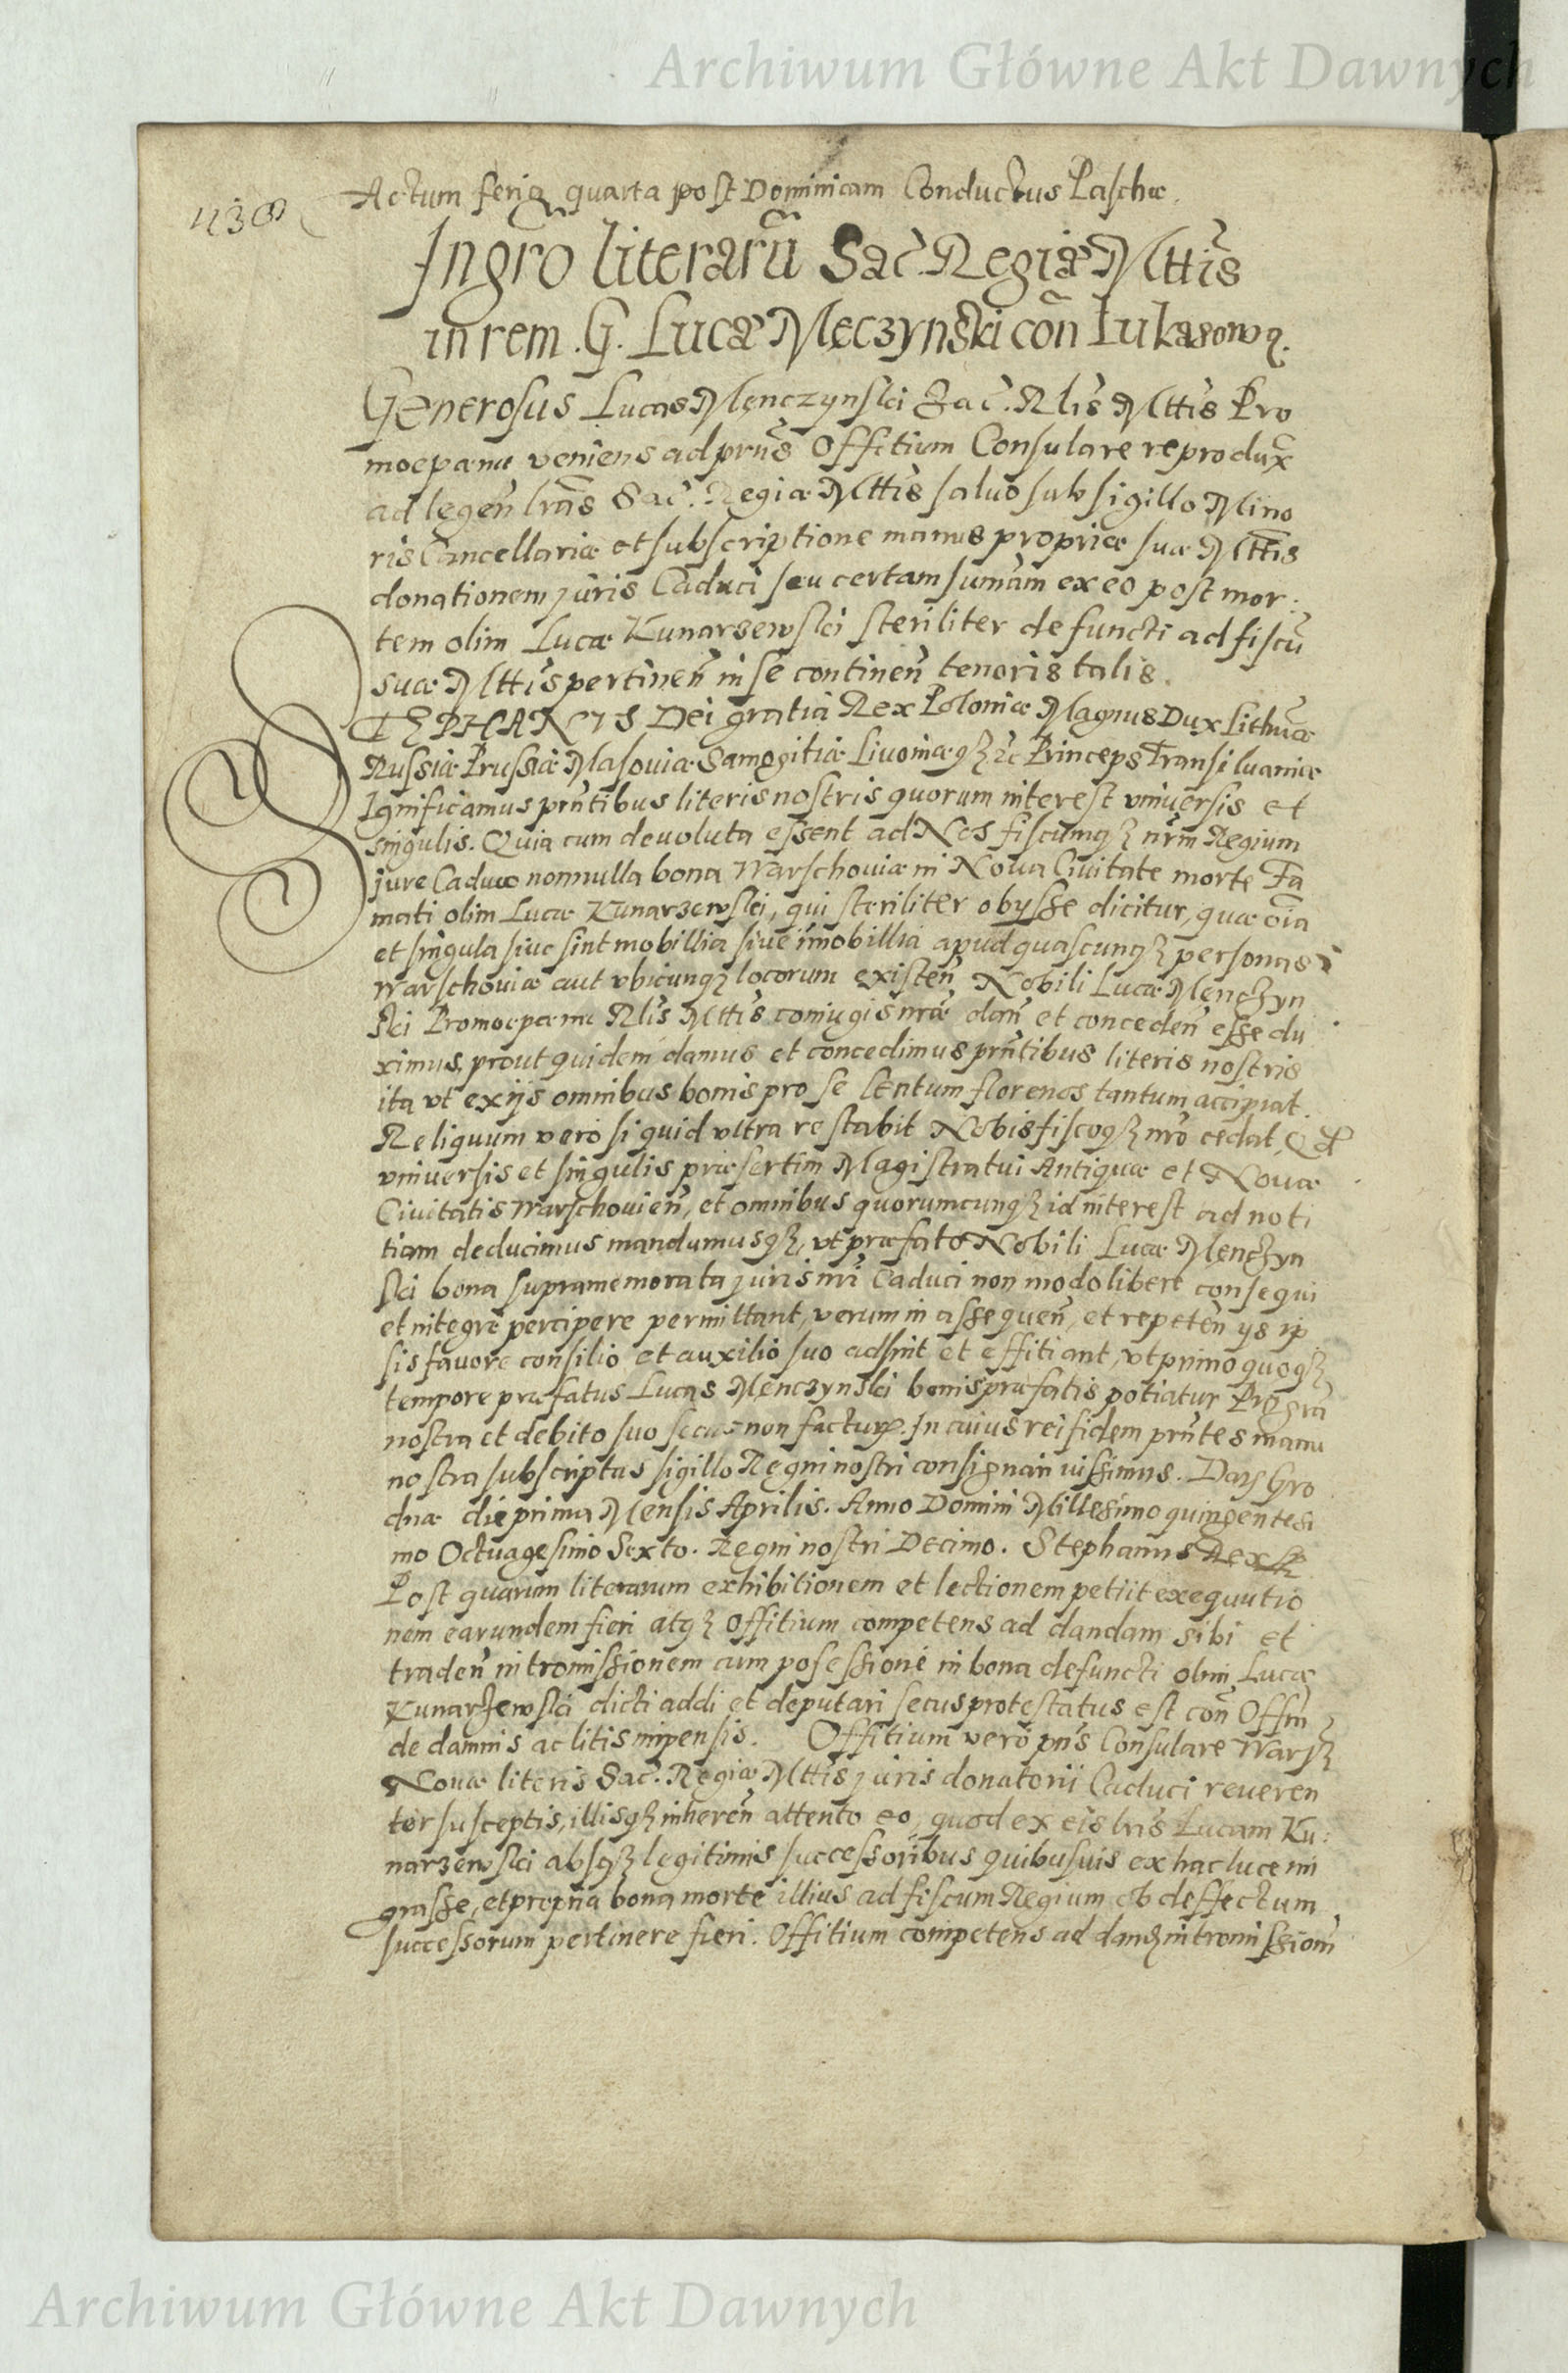 Archiwum Główne Akt Dawnych
438
Actum feria quarta post Dominicam Conductus Paschæ.
Ingro literarũ Sac. Regiæ Mttis
in rem G. Lucæ Męczynski con̄ Lukasową.
Generosus Lucas Męnczynski Sac. Rlis Mttis Pro
moepanu veniens ad prn̄s Offitium Consulare reprodux̄
ad legen̄ lrãs Sac. Regiæ Mttis saluo sub sigillo Mino
ris Cancellariæ et subscriptione manus propriæ suæ Mttis
donationem juris Caduci seu certam sum̄am ex eo post mor:
tem olim Lucæ Kunarzewski steriliter defuncti ad fiscũ
suæ Mttis pertinen̄ in se continen̄ tenoris talis.
STEPHANUS Dei gratia Rex Poloniæ Magnus Dux Lithuãæ
Russiæ Prussiæ Masouiæ Samogitiæ Liuoniæqz zc Princeps Transiluaniæ
Ignificamus prn̄tibus literis nostris quorum interest vniuersis et
singulis. Quia cum deuoluta essent ad Nos fiscumqz nrm̄ Regium
jure Caduco nonnulla bona Warschouiæ in Noua Ciuitate morte Fa
mati olim Lucæ Kunarzewski, qui steriliter obysse dicitur, quæ oĩa
et singula siue sint mobillia siue im̄obillia apud quascunqz personas
Warschouiæ aut vbicunqz locorum existen̄ Nobili Lucæ Męnczyn
ski Promoepanu Rlis Mttis coniugis nrǣ dan̄ et conceden̄ esse du
ximus, prout quidem damus et concedimus prn̄tibus literis nostris
ita vt ex ijs omnibus bonis pro se Centum florenos tantum accipiat.
Reliquum vero si quid vltra restabit Nobis fiscoqz nrō cedat, Qd
vniuersis et singulis præsertim Magistratui Antiquæ et Nouæ
Ciuitatis Warschouien̄, et omnibus quorumcunqz id interest ad noti
tiam deducimus mandamusqz, vt præfato Nobili Lucæ Męnczyn
ski bona supramemorata juris nrī Caduci non modo libere consequi
et integre percipere permittant, verum in assequen̄, et repeten̄ ys ip
sis favore consilio et auxilio suo adsint et effitiant, vt primo quoqz
tempore præfatus Lucas Męnczynski bonis præfatis potiatur Pro grã
nostra et debito suo secus non factur. In cuius rei fidem prn̄tes manu
nostra subscriptas sigillo Regni nostri consignari iussimus. Datz Gro
dnæ die prima Mensis Aprilis. Anno Domini Millesimo quingentesi
mo Octuagesimo Sexto. Regni nostri Decimo. Stephanus Rex
Post quarum literarum exhibitionem et lectionem petiit exequutio
nem earundem fieri atqz Offitium competens ad dandam sibi et
traden̄ intromissionem cum posessione in bona defuncti olim Lucæ
Kunarzewski dicti addi et deputari secus protestatus est con̄ Offm̄
de damnis ac litis inpensis. Offitium vero pn̄s Consulare Warsz
Nouæ literis Sac. Regiæ Mttis juris donatorii Caduci reueren
ter susceptis, illisqz inheren̄ attento eo, quod ex eis lris Lucam Ku:
narzewski absqz legitimis successoribus quibusuis ex hac luce mi
grasse, et propria bona morte illius ad fiscum Regium ob deffectum
successorum pertinere fieri. Offitium competens ad dandz intromission̄
Archiwum Główne Akt Dawnych